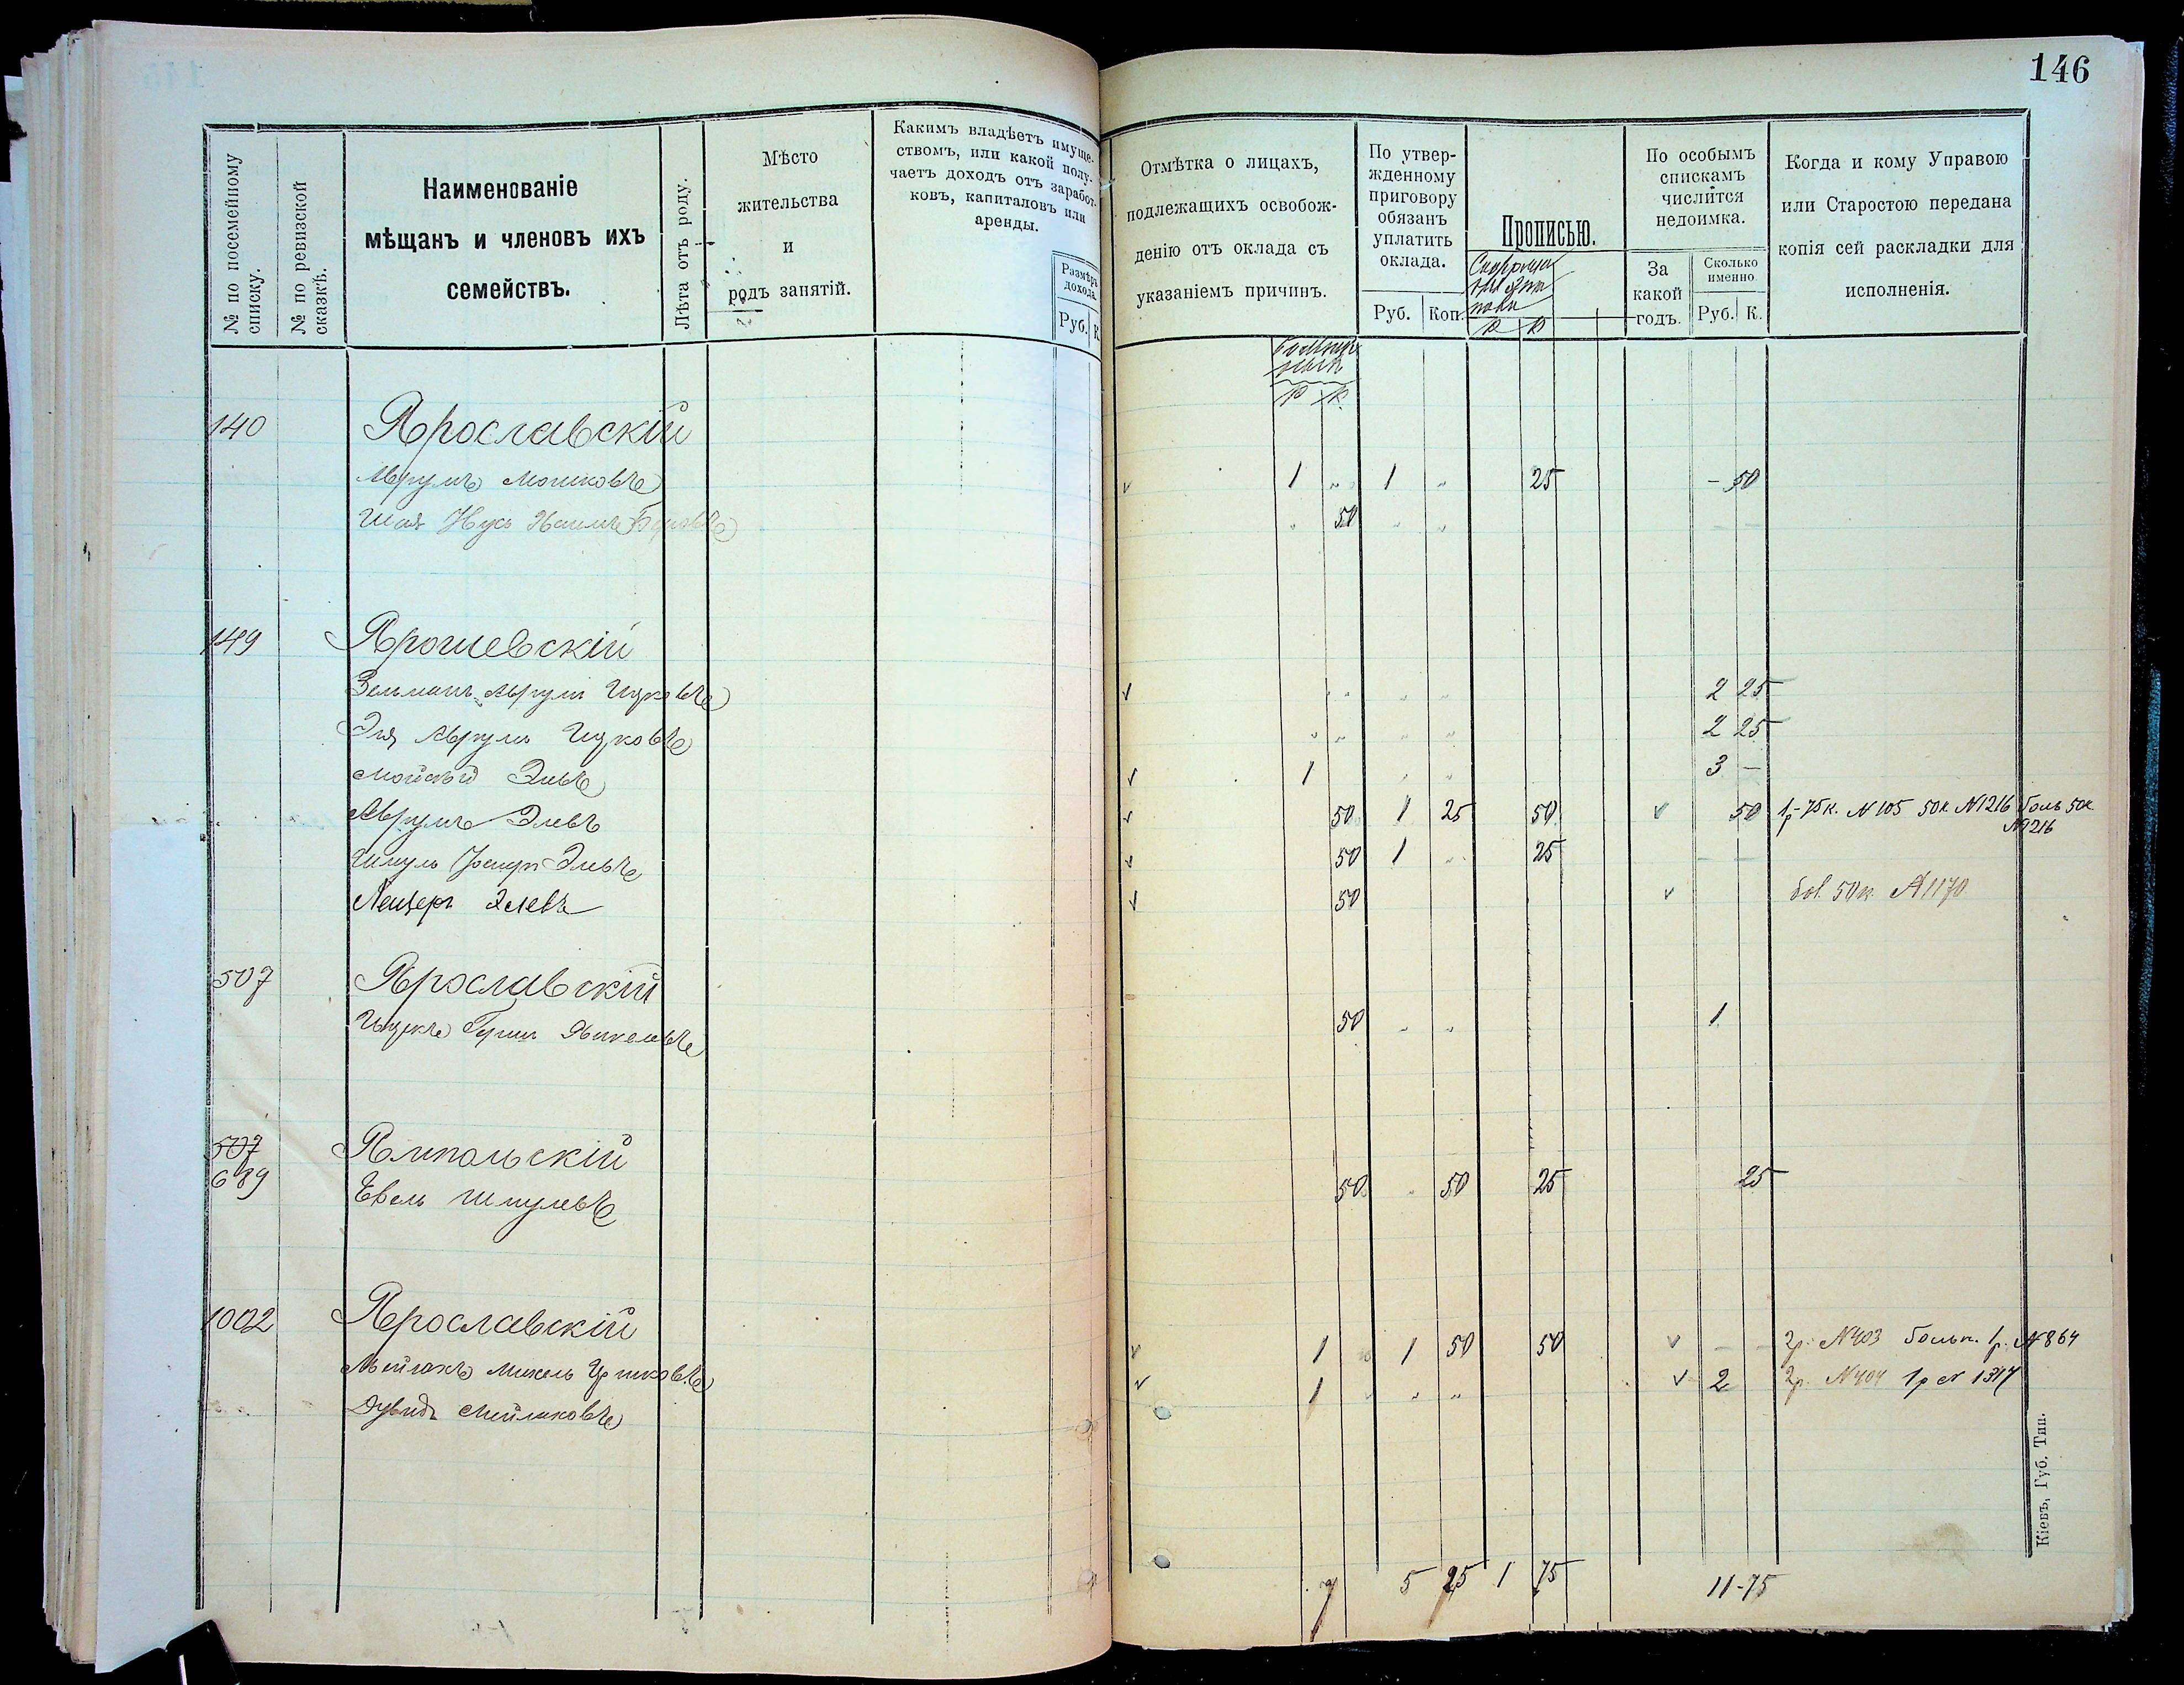 146
№ по посемейному списку.
№ по ревизской сказкѣ.
Наименованіе
мѣщанъ и членовъ ихъ
семействъ.
Лѣта отъ роду.
Мѣсто
жительства
и
родъ занятій.
Какимъ владѣетъ имуще-
ствомъ, или какой полу-
чаетъ доходъ отъ заработ-
ковъ, капиталовъ или
аренды.
Размѣръ
дохода.
Руб. К.
Отмѣтка о лицахъ,
подлежащихъ освобож-
денію отъ оклада съ
указаніемъ причинъ.
По утвер-
жденному
приговору
обязанъ
уплатить
оклада.
Руб. Коп.
Прописью.
Р К
По особымъ
спискамъ
числится
недоимка.
За
какой
годъ.
Сколько
именно.
Руб. К.
Когда и кому Управою
или Старостою передана
копія сей раскладки для
исполненія.
Р К.
140 Ярославскій
Аврумъ Мошковъ 1 „ 1 „ 25 - 50
Шая 50 „ „
149 Ярошевскій
Зельманъ Аврумъ Ицковъ „ „ „ 2 25
Эля Аврумъ Ицковъ „ „ „ „ 2 25
Мойсей Элевъ 1 „ „ 3 -
Аврумъ Элевъ 50 1 25 50 50 1р-75к. N 105 50к N1216 боль 50к
N1216
Шмуль Элевъ 50 1 „ 25
Лейзеръ Элевъ 50 бол. 50к. N1170
507 Ярославскій
Ицекъ Гершъ Янкелевъ 50 „ „ 1
507
689 Ямпольскій
Евель Шмулевъ 50 „ 50 25 25
1002 Ярославскій
Мейлахъ Михель 1 1 50 50 - 2р. N403 больн. 1р. N864
Дувидъ Мейлаховъ 1 „ „ 2 2р. N404 1р N 1317
7 5 25 1 75 11-75
Кіевъ, Губ. Тип.